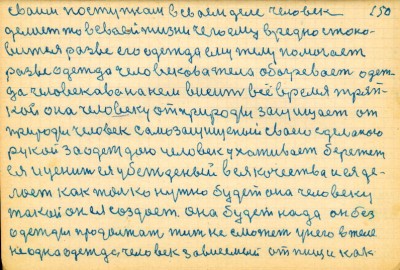 своим поступкам в своем деле человек 150
делает то в своей жизни чего ему вредно стоко-
вится разве его одежда ему телу помогает
разве одежда человекова тело обогревает одеж-
да человекова на нем висит всё время тряп-
кой она человеку от природы защищает от
природы человек самозащищеный своею сделаною
рукой за одеждою человек ухаживает бережет
ся и ценится убежденый вся качества и ея де-
лает как только нужно будет она человеку
такой он ея создает она будет надо он без
одежды продолжат жить не сможет у него в теле
не одна одежда человек зависемый от пищи как